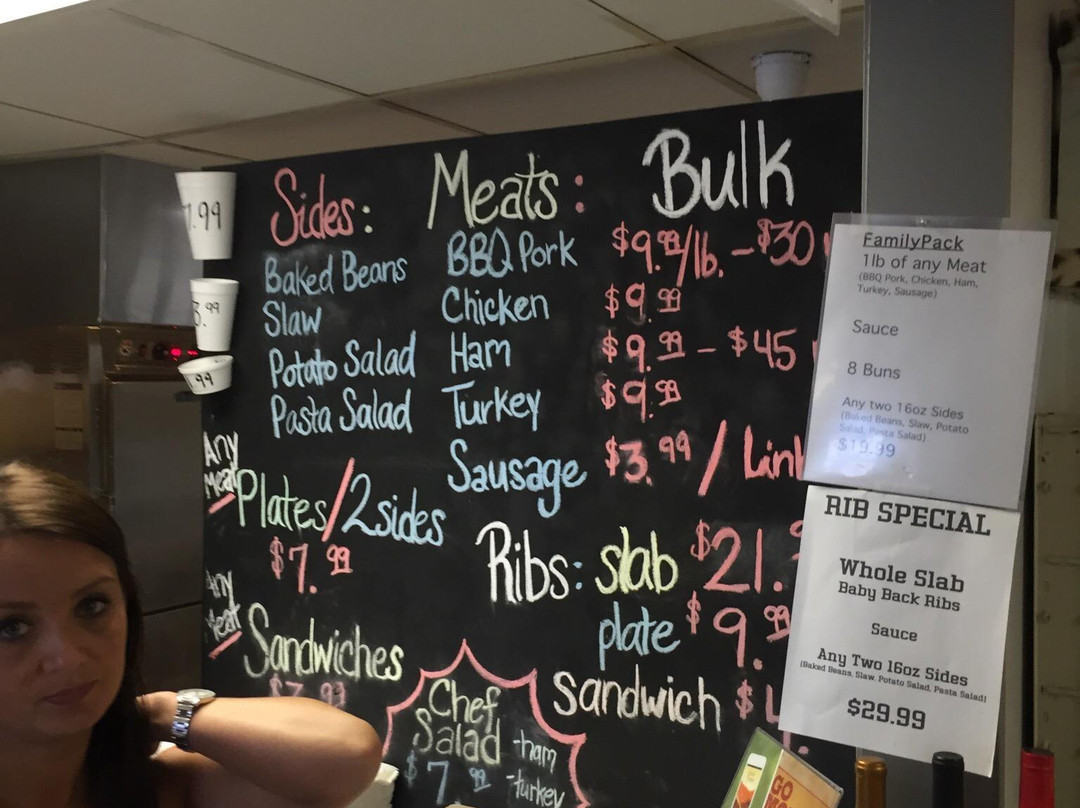 .99
.99
.99
Sides:
Baked Beans
Slaw
Potato Salad
Pasta Salad
Any
Meat
Plates/2sides
$7.99
Any
Meat
Sandwiches
Meats: Bulk
BBQ Pork $9.99/lb. - $30
Chicken $9.99
Ham $9.99 - $45
Turkey $9.99
Sausage $3.99 / Link
Ribs: slab $21.
plate $9.99
sandwich $
Chef
Salad
$7.99
-ham
-turkey
FamilyPack
1lb of any Meat
(BBQ Pork, Chicken, Ham,
Turkey, Sausage)
Sauce
8 Buns
Any two 16oz Sides
(Baked Beans, Slaw, Potato
Salad, Pasta Salad)
$19.99
RIB SPECIAL
Whole Slab
Baby Back Ribs
Sauce
Any Two 16oz Sides
(Baked Beans, Slaw, Potato Salad, Pasta Salad)
$29.99
GO